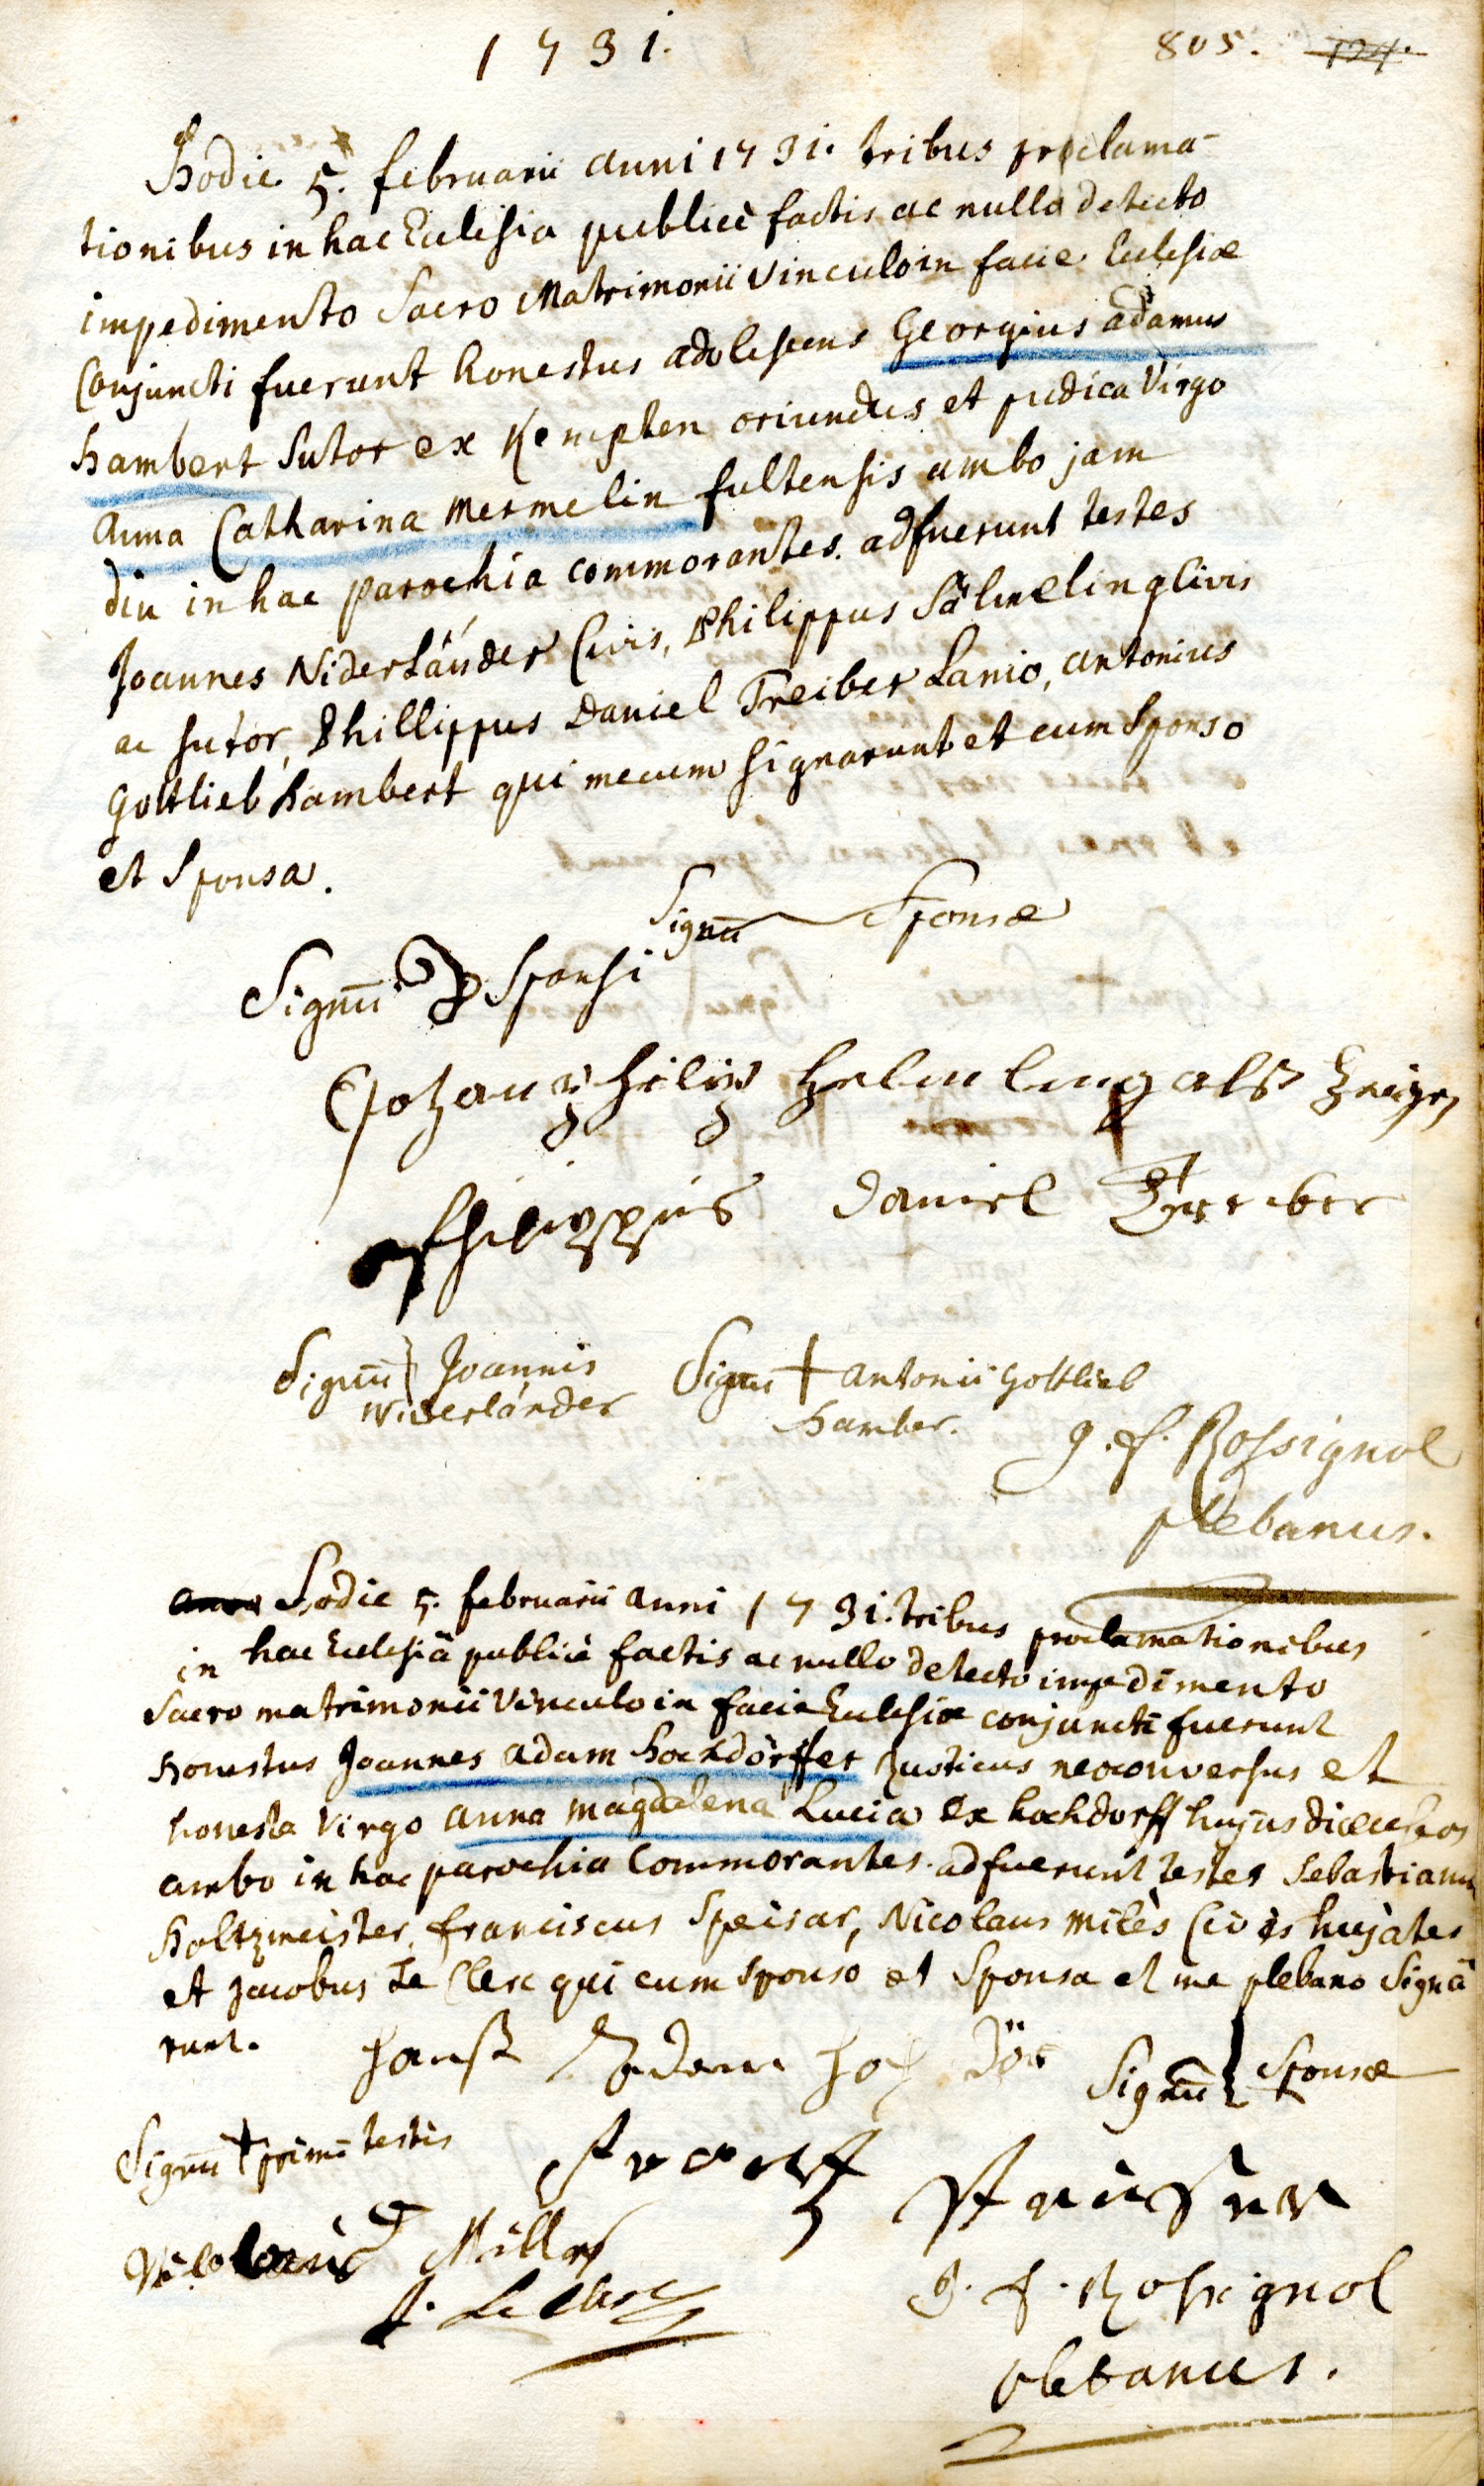 1731.
805. 124.
Hodie 5. februarii anni 1731. tribus proclama-
tionibus in hac Ecclesia publicè factis ac nullo detecto
impedimento Sacro Matrimonii vinculo in facie Ecclesiæ
Conjuncti fuerunt honestus adolescens Georgius adamus
hambert Sutor ex Kempten oriundus et pudica Virgo
anna Catharina Mermelin fultensis ambo jam
diu in hac parochia commorantes. adfuerunt testes
Joannes Niderländer Civis, Philippus Sälmeling Civis
ac sutor, Phillippus Daniel Treiber Lanio, antonius
Gottlieb hambert qui mecum signarunt et cum Sponso
et Sponsa.
Signū Sponsæ
Signū Sponsi
Johan philip helmling alß Zeigen
philippus Daniel Treiber
Signū Joannis
Niderländer
Signū + antonii Gottlieb
hamber.
J. f. Rossignol
plebanus.
Hodie 5. februarii anni 1731. tribus proclamationibus
in hac Ecclesiâ publicè factis ac nullo detecto impedimento
Sacro matrimonii Vinculo in facie Ecclesiæ conjuncti fuerunt
honestus Joannes adam hochdörffer Rusticus neoconversus et
honesta Virgo anna magdalena Lucia ex hochdorff hujus diœceseos
ambo in hac parochia Commorantes. adfuerunt testes Sebastianus
Holtzmeister, franciscus Speisar, Nicolaus milès Civis hujates
et Jacobus Le Clerc qui cum sponso et Sponsa et me plebano Signâ
runt.
hanß Adam hoch dör
Signū Sponsæ
Signū + primi testis
Müller
J. LeClerc
J. f. Rossignol
plebanus.